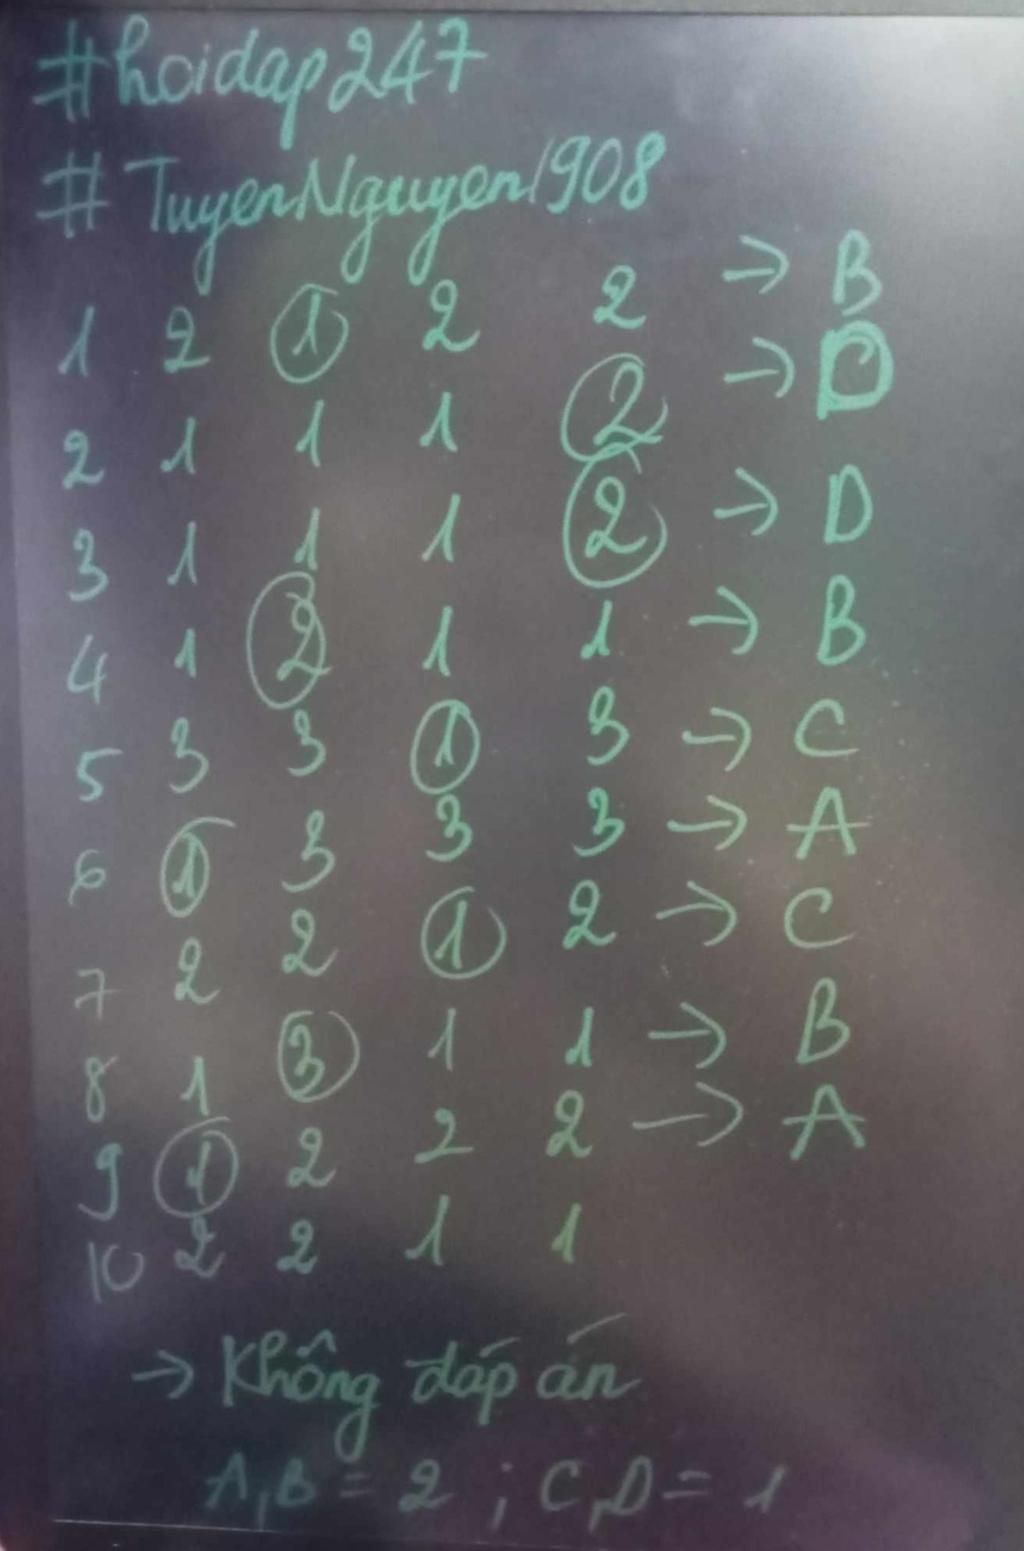 #hoidap247
# TuyenNguyen1908
1 2 1 2 2 → B
2 1 1 1 2 → D
3 1 1 1 2 → D
4 1 2 1 1 → B
5 3 3 1 3 → C
6 1 3 3 3 → A
7 2 2 1 2 → C
8 1 3 1 1 → B
9 1 2 2 2 → A
10 2 2 1 1
→ Không đáp án
A,B = 2 ; C,D = 1